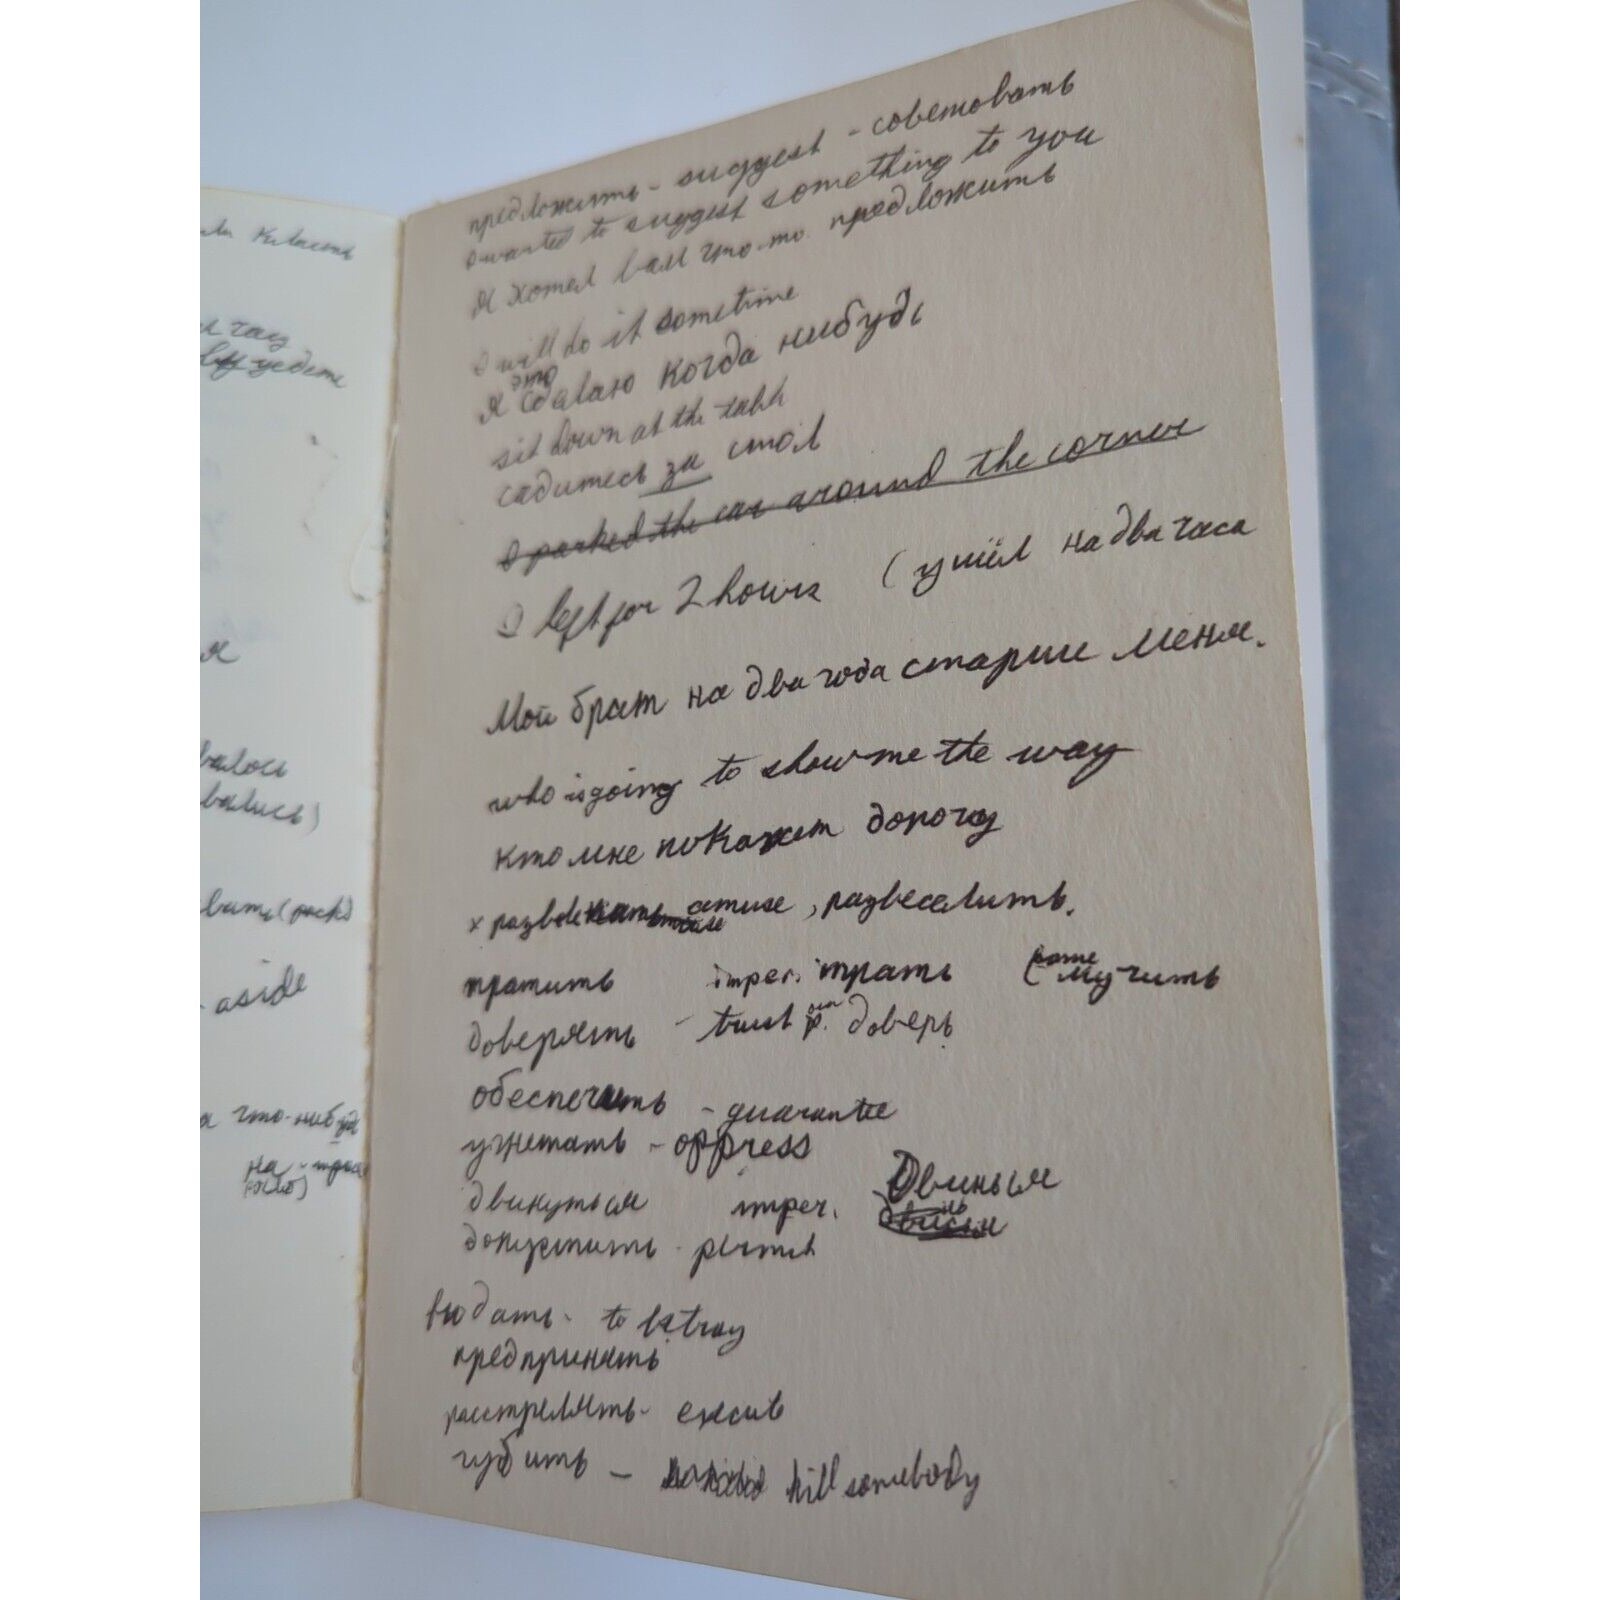 ли класть
и час
вы уедете
я
вались
вались)
вать (pack)
- aside
а что-нибудь
на -
предложить - suggest - советовать
I wanted to suggest something to you
Я хотел вам что-то предложить
I will do it sometime
это
Я сделаю когда нибудь
sit down at the table
садитесь за стол
I parked the car around the corner
I left for 2 hours (ушёл на два часа
Мой брат на два года старше меня.
who is going to show me the way
кто мне покажет дорогу
x развлекать amuse, развеселить.
тратить imper. трать (same мучить
доверять - trust доверь
обеспечить - guarantee
угнетать - oppress
двинуться imper. Двинься
допустить - permit
выдать - to betray
предпринять
расстрелять -
губить - kill somebody